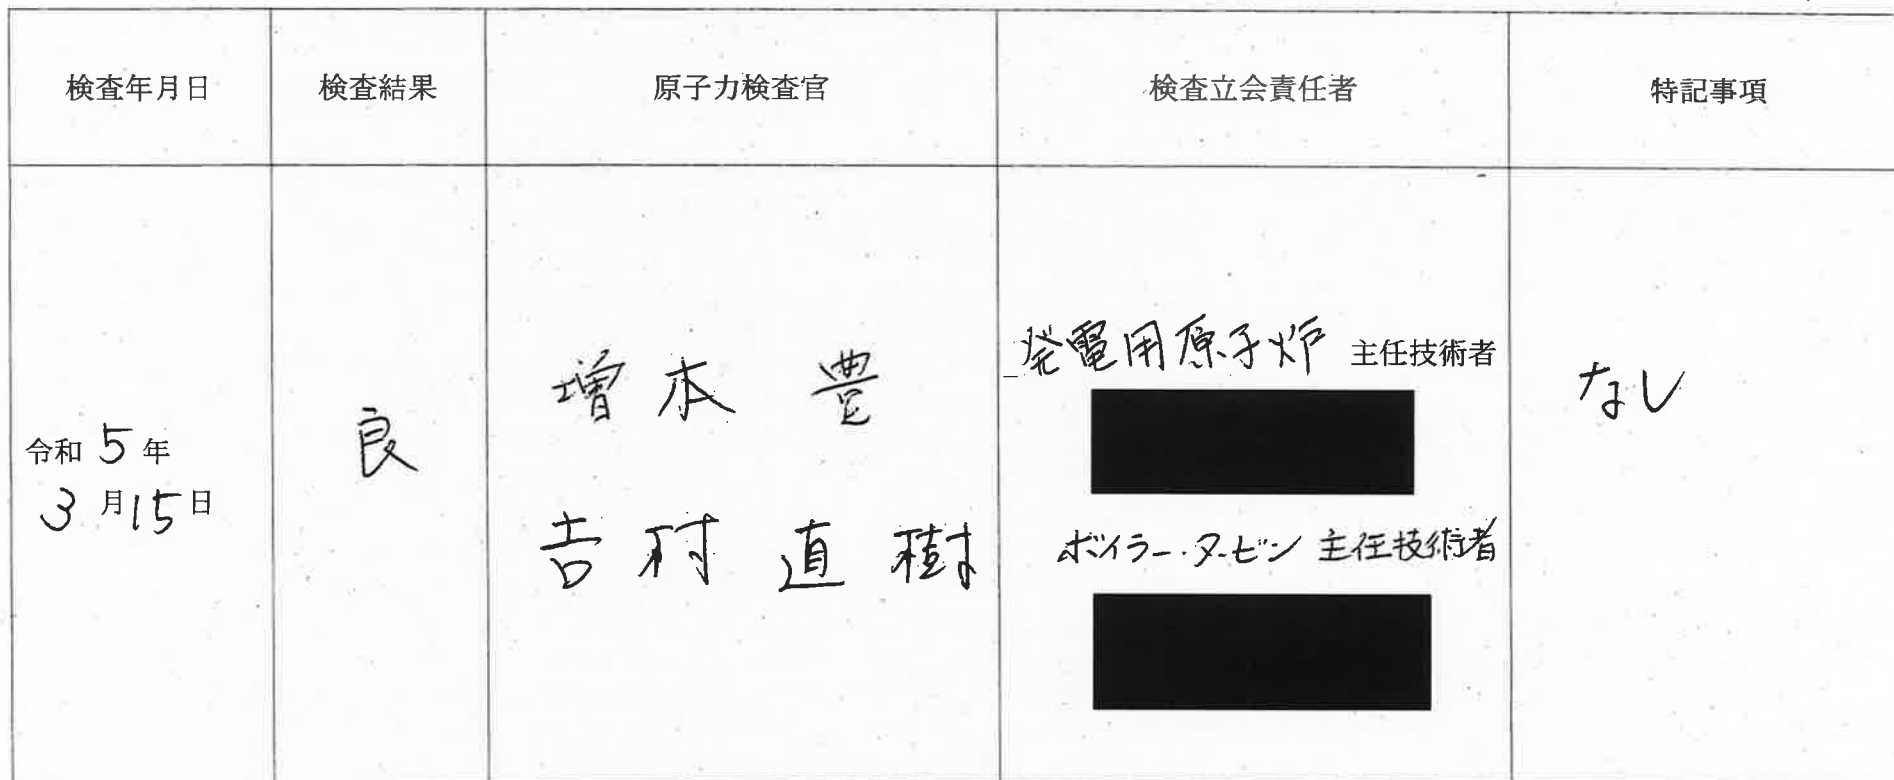 検査年月日 検査結果 原子力検査官 検査立会責任者 特記事項
令和5年
3月15日
良
増本 豊
吉村 直樹
発電用原子炉 主任技術者
ボイラー・タービン 主任技術者
なし